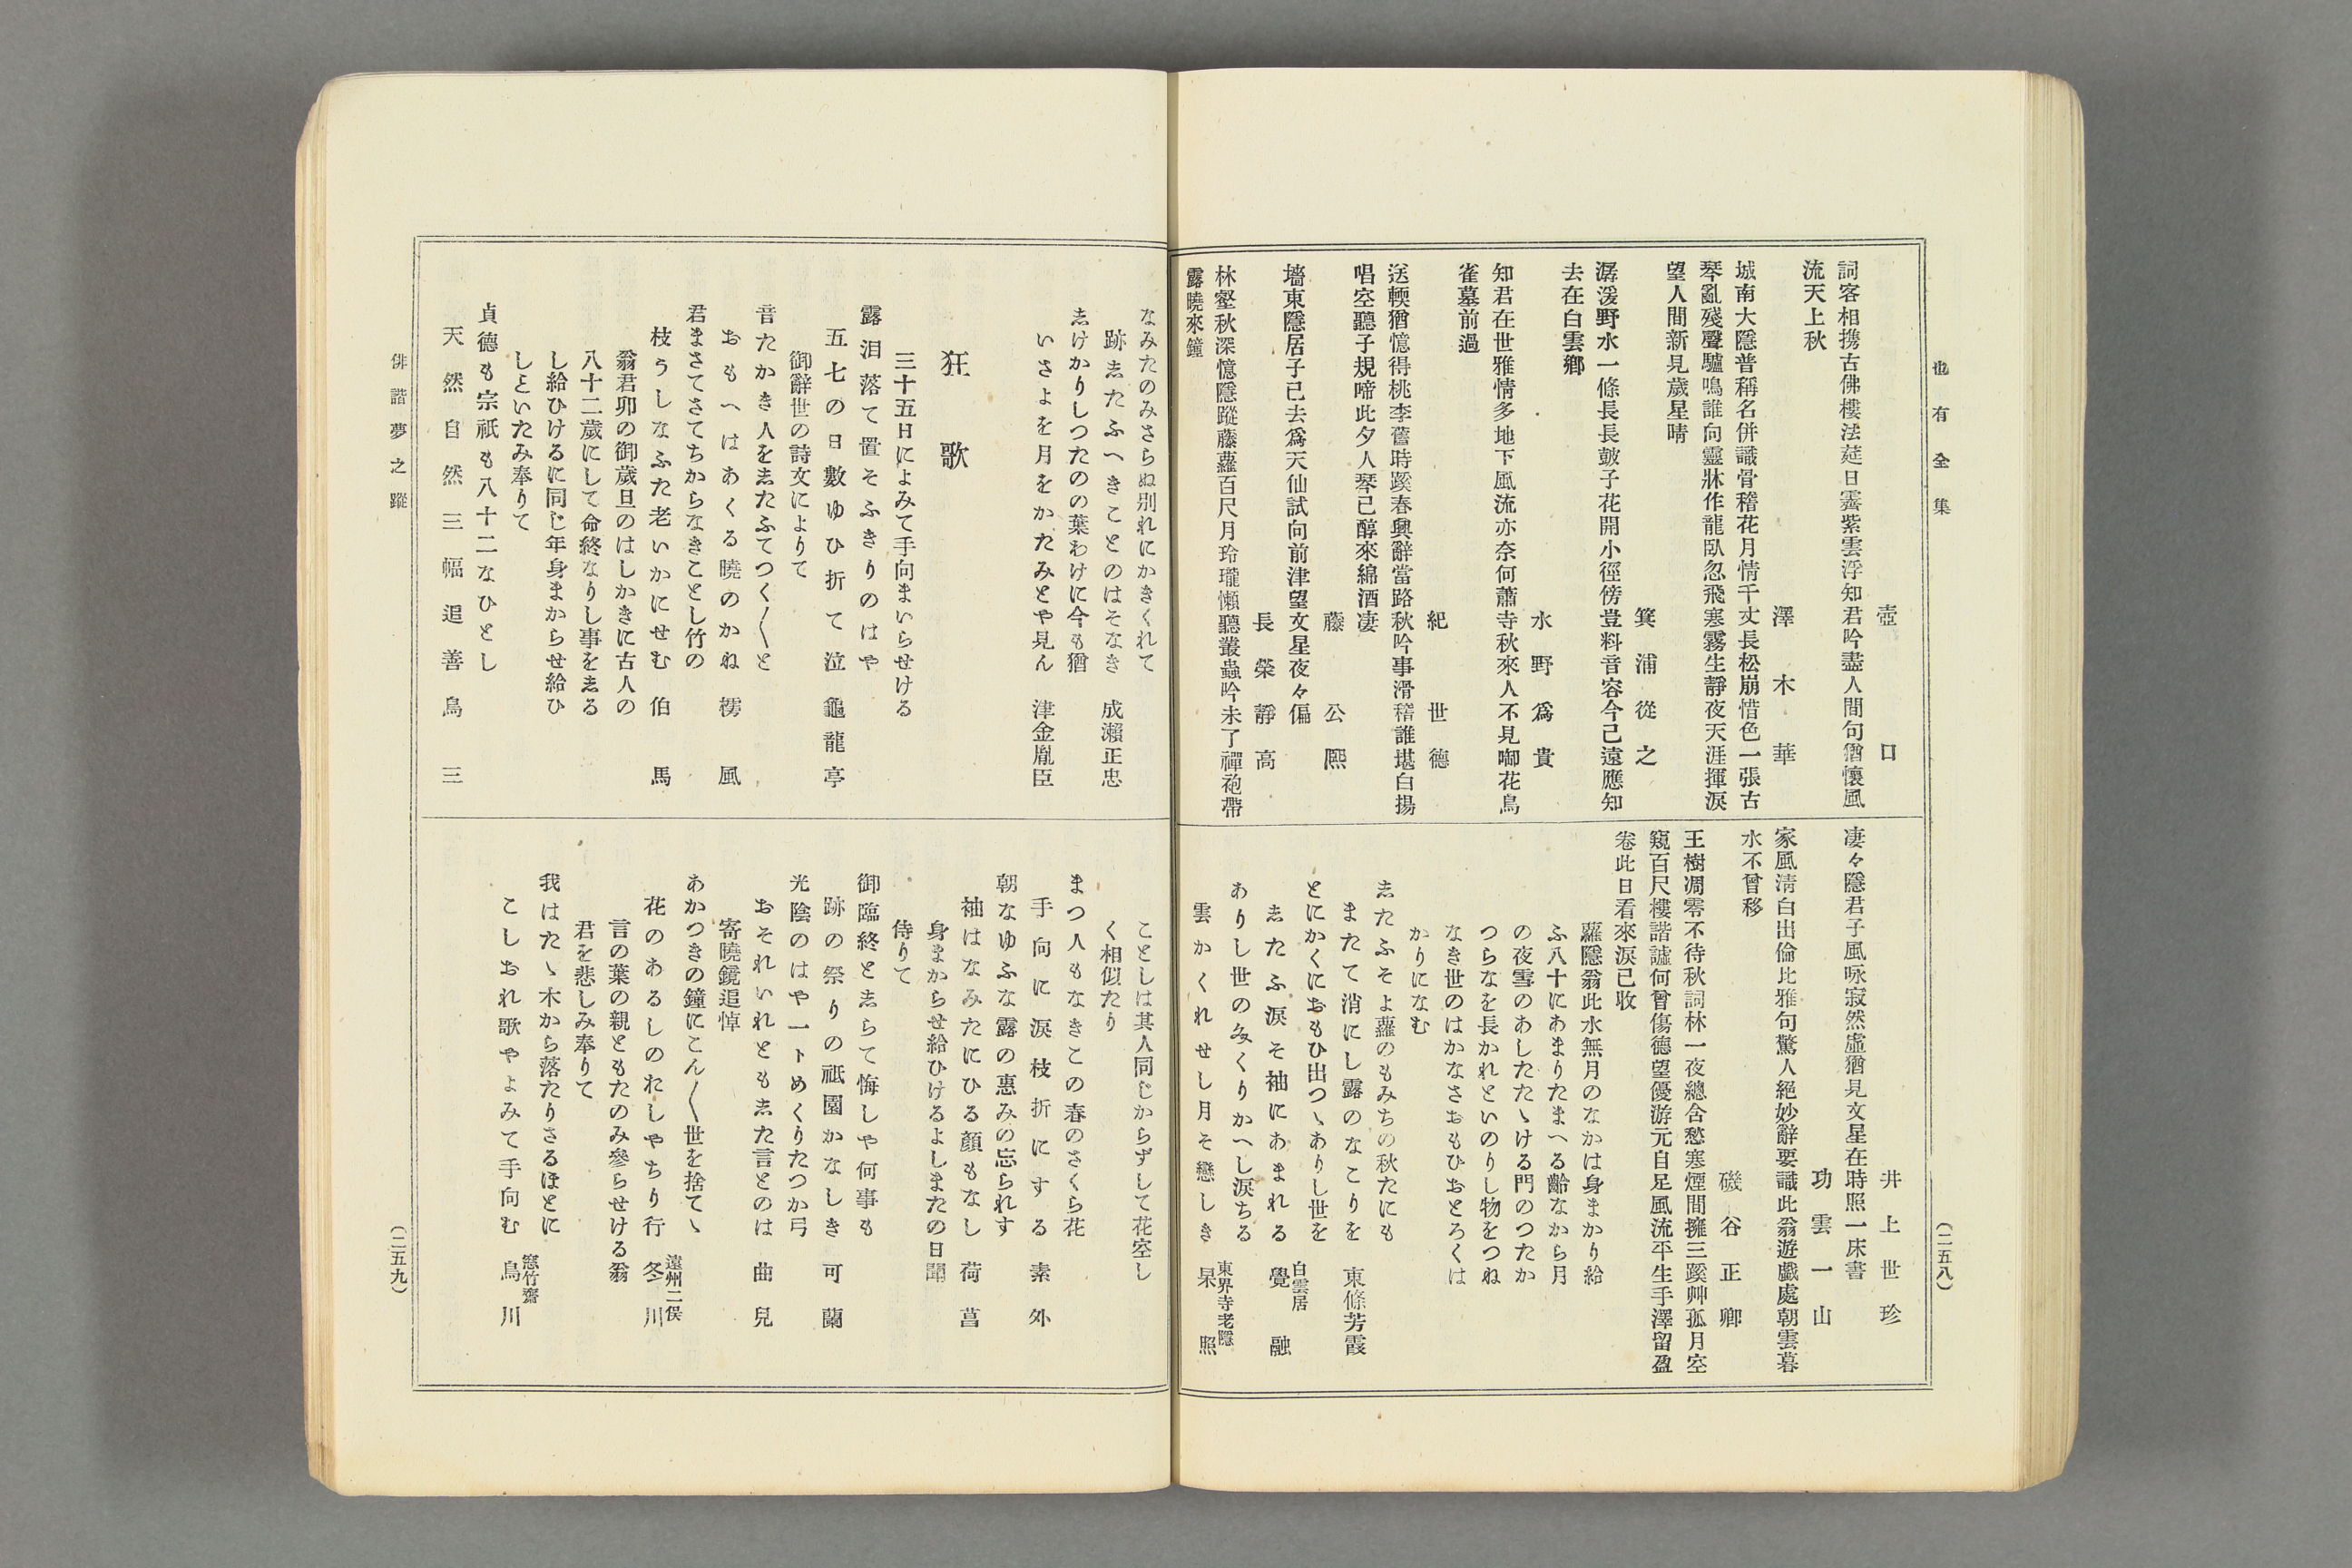 也有全集
(二五八)
壺口
詞客相携古佛樓法莚日霽紫雲浮知君吟盡人間句猶懷風
流天上秋
澤木華
城南大隱普稱名併識骨稽花月情千丈長松崩惜色一張古
琴亂殘聲驢鳴誰向靈牀作龍臥忽飛塞霧生靜夜天涯揮淚
望人間新見歲星晴
箕浦從之
潺湲野水一條長長皷子花開小徑傍豈料音容今已遠應知
去在白雲鄕
水野爲貴
知君在世雅情多地下風流亦奈何蕭寺秋來人不見啣花鳥
雀墓前過
紀世德
送輭猶憶得桃李舊時蹊春興辭當路秋吟事滑稽誰堪白揚
唱空聽子規啼此夕人琴已醇來綿酒凄
藤公熈
墻東隱居子已去爲天仙試向前津望文星夜々偏
長榮靜高
林壑秋深憶隱蹤藤蘿百尺月玲瓏懶聽叢蟲吟未了禪袍帶
露曉來鐘
井上世珍
凄々隱君子風咏寂然虛猶見文星在時照一床書
功雲一山
家風淸白出倫比雅句驚人絕妙辭要識此翁遊戲處朝雲暮
水不曾移
磯谷正卿
王樹凋零不待秋詞林一夜總含愁塞煙間擁三蹊艸孤月空
窺百尺樓諧謔何曾傷德望優游元自足風流平生手澤留盈
卷此日看來淚已收
蘿隱翁此水無月のなかは身まかり給
ふ八十にあまりたまへる齡なから月
の夜雪のあしたたゝける門のつたか
つらなを長かれといのりし物をつね
なき世のはかなさおもひおとろくは
かりになむ
志たふそよ蘿のもみちの秋たにも
またて消にし露のなこりを 東條芳霞
とにかくにおもひ出つゝありし世を
志たふ淚そ袖にあまれる 白雲居 覺融
ありし世の友くりかへし淚ちる
雲かくれせし月そ戀しき 東界寺老隱 杲照
なみたのみさらぬ別れにかきくれて
跡志たふへきことのはそなき 成瀨正忠
志けかりしつたのの葉わけに今も猶
いさよを月をかたみとや見ん 津金胤臣
狂歌
三十五日によみて手向まいらせける
露泪落て置そふきりのはや
五七の日數ゆひ折て泣 龜龍亭
御辭世の詩文によりて
音たかき人を志たふてつく〳〵と
おもへはあくる曉のかね 樗風
君まさてさてちからなきことし竹の
枝うしなふた老いかにせむ 伯馬
翁君卯の御歲旦のはしかきに古人の
八十二歲にして命終なりし事を志る
し給ひけるに同じ年身まからせ給ひ
しといたみ奉りて
貞德も宗祇も八十二なひとし
天然自然三幅追善 鳥三
ことしは其人同じからずして花空し
く相似たり
まつ人もなきこの春のさくら花
手向に淚枝折にする 素外
朝なゆふな露の惠みの忘られす
袖はなみたにひる顏もなし 荷菖
身まからせ給ひけるよしまたの日聞
侍りて
御臨終と志らて悔しや何事も
跡の祭りの祗園かなしき 可蘭
光陰のはや一トめくりたつか弓
おそれいれとも志た言とのは 曲兒
寄曉鐘追悼
あかつきの鐘にこん〳〵世を捨てゝ
花のあるしのわしやちり行 遠州二俣 冬川
言の葉の親ともたのみ參らせける翁
君を悲しみ奉りて
我はたゝ木から落たりさるほとに
こしおれ歌やよみて手向む 窓竹齋 鳥川
俳諧夢之蹤
(二五九)